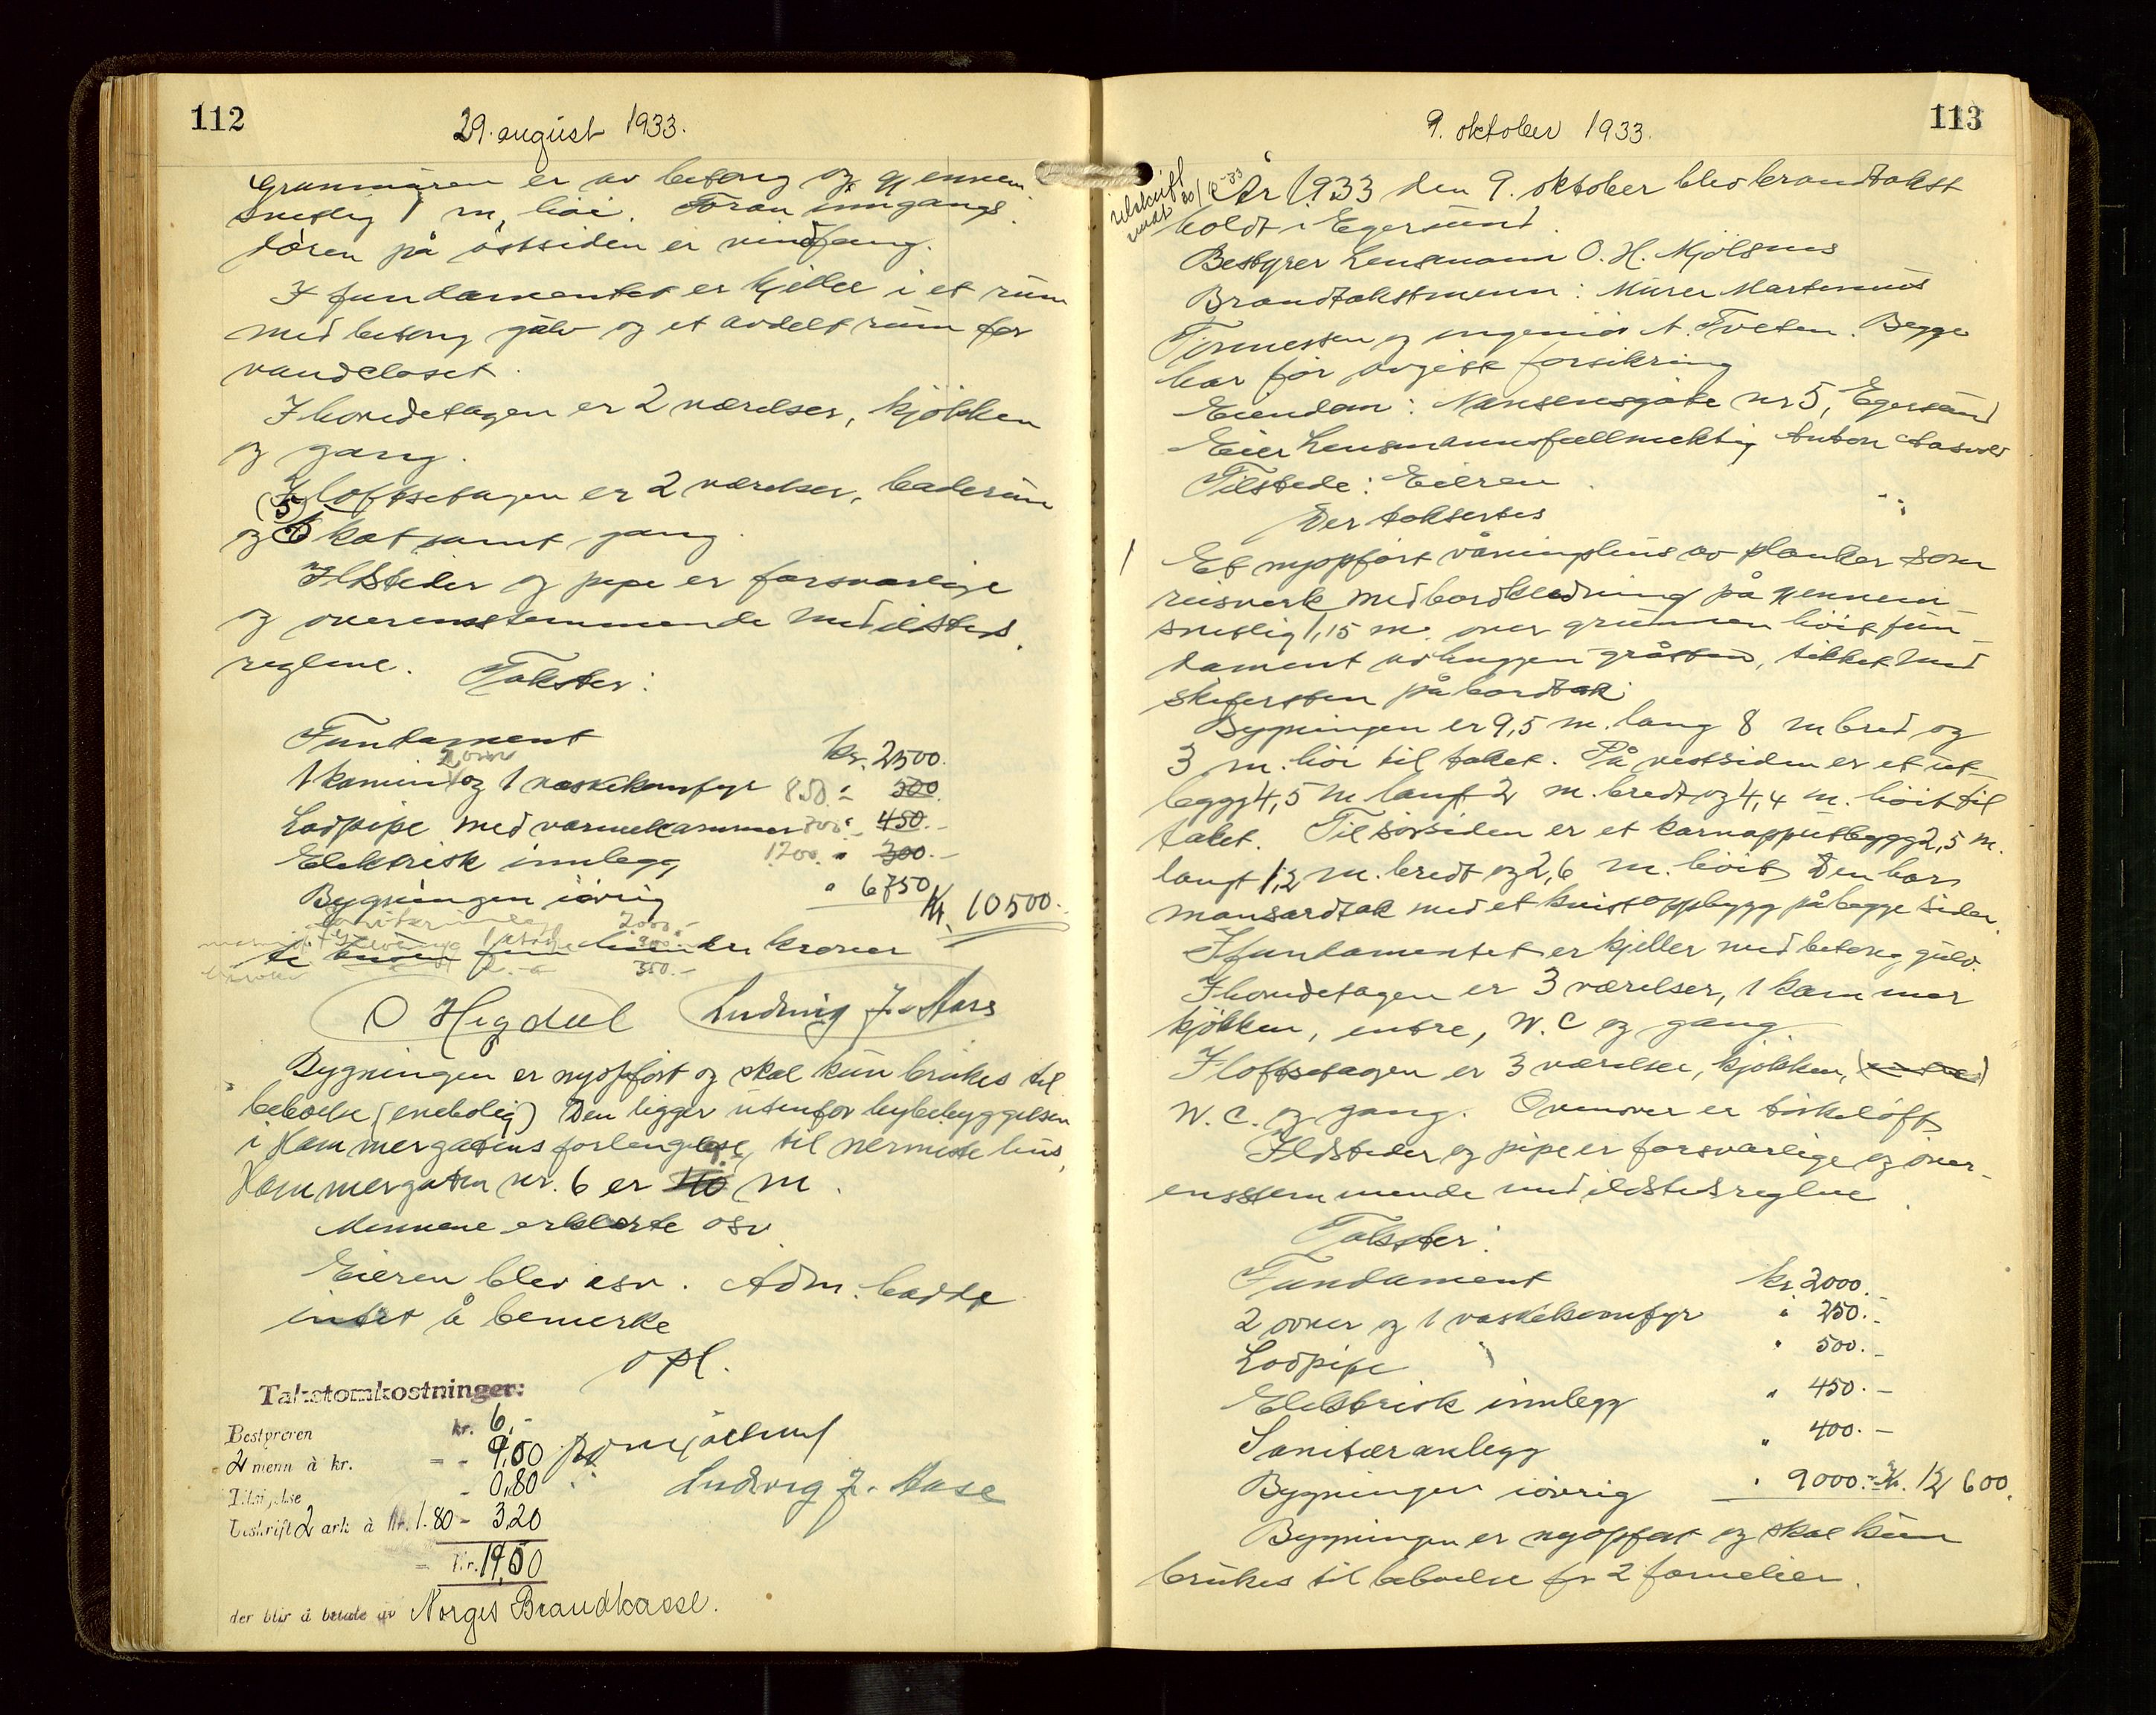 112
29. august 1933.
Grunnmuren er av betong og gjennem
snitlig 1 m. höi. Foran inngangs
dören på östsiden er vindfang.
I fundamentet er kjeller i et rum
med betong gulv og et avdelt rum for
vandcloset.
I hovedetagen er 2 værelser, kjökken
og gang.
I loftsetagen er 2 værelser, baderum
(5)
og kot samt gang.
Ildsteder og pipe er forsvarlige
og overensstemmende med ildsteds
reglene. Takster:
Fundament kr. 2500.
2 ovner
1 kamin og 1 vaskekomfyr 850.- " 500.
Lodpipe med varmekammer 700.- " 450.-
Elektrisk innlegg 1200. " 300.-
Bygningen iövrig " 6750 Kr. 10500.-
2000.-
900.-
ti tusen fem hundre kroner
350.-
O Hegdal Ludvig J. Aase
Bygningen er nyopfört og skal kun brukes til
beboelse (enebolig) Den ligger utenfor bybebyggelsen
i Hammergatens forlengelse, til nermeste hus,
Hammergaten nr. 6 er 40 m.
Mennene erklærte osv
Eieren blev osv. Adm. hadde
intet å bemerke
opl.
Takstomkostninger:
Bestyreren kr. 6,-
2 menn à kr. = - 9,50
Tilsigelse - 0,80
Utskrift 2 ark à kr. 1.80 - 3,20
= kr. 19,50
Ludvig J. Aase
der blir å betale av Norges Brandkasse.
113
9. oktober 1933.
utskrift
År 1933 den 9. oktober blev brandtakst
holdt i Egersund.
Bestyrer Lensmann O. H. Mjölsnes
Brandtakstmenn: Murer Martinius
Tönnessen og ingeniör A. Tveten. Begge
har för avgitt forsikring
Eiendom: Nansensgate nr 5, Egersund
Eier Lensmannsfullmektig Anton Aasvold
Tilstede: Eieren.
Der taksertes
1 Et nyopfört våningshus av planker som
reisverk med bordkledning på gjennem
snitlig 1,15 m. over grunnen höit fun-
dament av huggen gråsten, tekket med
skifersten på bordtak.
Bygningen er 9,5 m. lang 8 m bred og
3 m. höi til taket. På vestsiden er et ut-
bygg 4,5 m langt 2 m. bredt og 4,4 m. höit til
taket. Til sörsiden er et karnapputbygg 2,5 m.
langt 1,2 m. bredt og 2,6 m. höit Den har
mansardtak med et kvistoppbygg på begge sider.
I fundamentet er kjeller med betong gulv.
I hovedetagen er 3 værelser, 1 kammer
kjökken, entre, W.C og gang
I loftsetagen er 3 værelser, kjökken, (entre)
W.C. og gang. Ovenover er törkeloft
Ildsteder og pipe er forsvarlige og over-
ensstemmende med ildstedsreglene.
Takster:
Fundament kr 2000.-
2 ovner og 1 vaskekomfyr " 250.-
Lodpipe " 500.-
Elektrisk innlegg " 450.-
Sanitæranlegg " 400.-
Bygningen iövrig " 9000.- Kr. 12 600.
Bygningen er nyopfört og skal kun
brukes til beboelse for 2 familier.